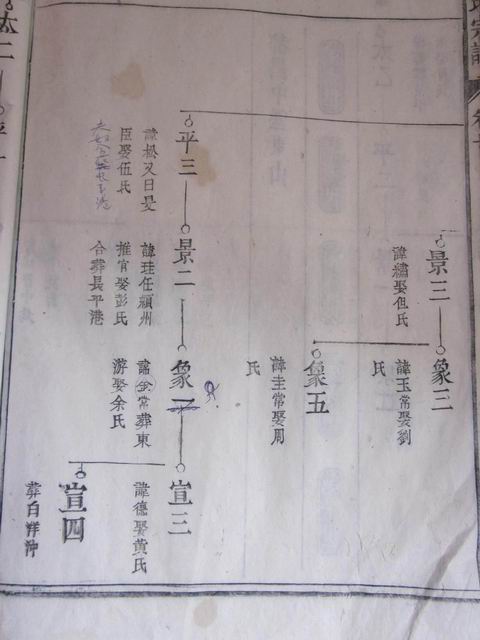 氏宗譜
景三
諱繡娶但氏
象三
諱玉常娶劉
氏
象五
諱圭常娶周
氏
平三
諱松又日旻
臣娶伍氏
景二
諱珪任潁州
推官娶彭氏
合葬長平港
象一
諱金常葬東
游娶余氏
宣三
諱德娶黃氏
宣四
葬白洋冲
太二